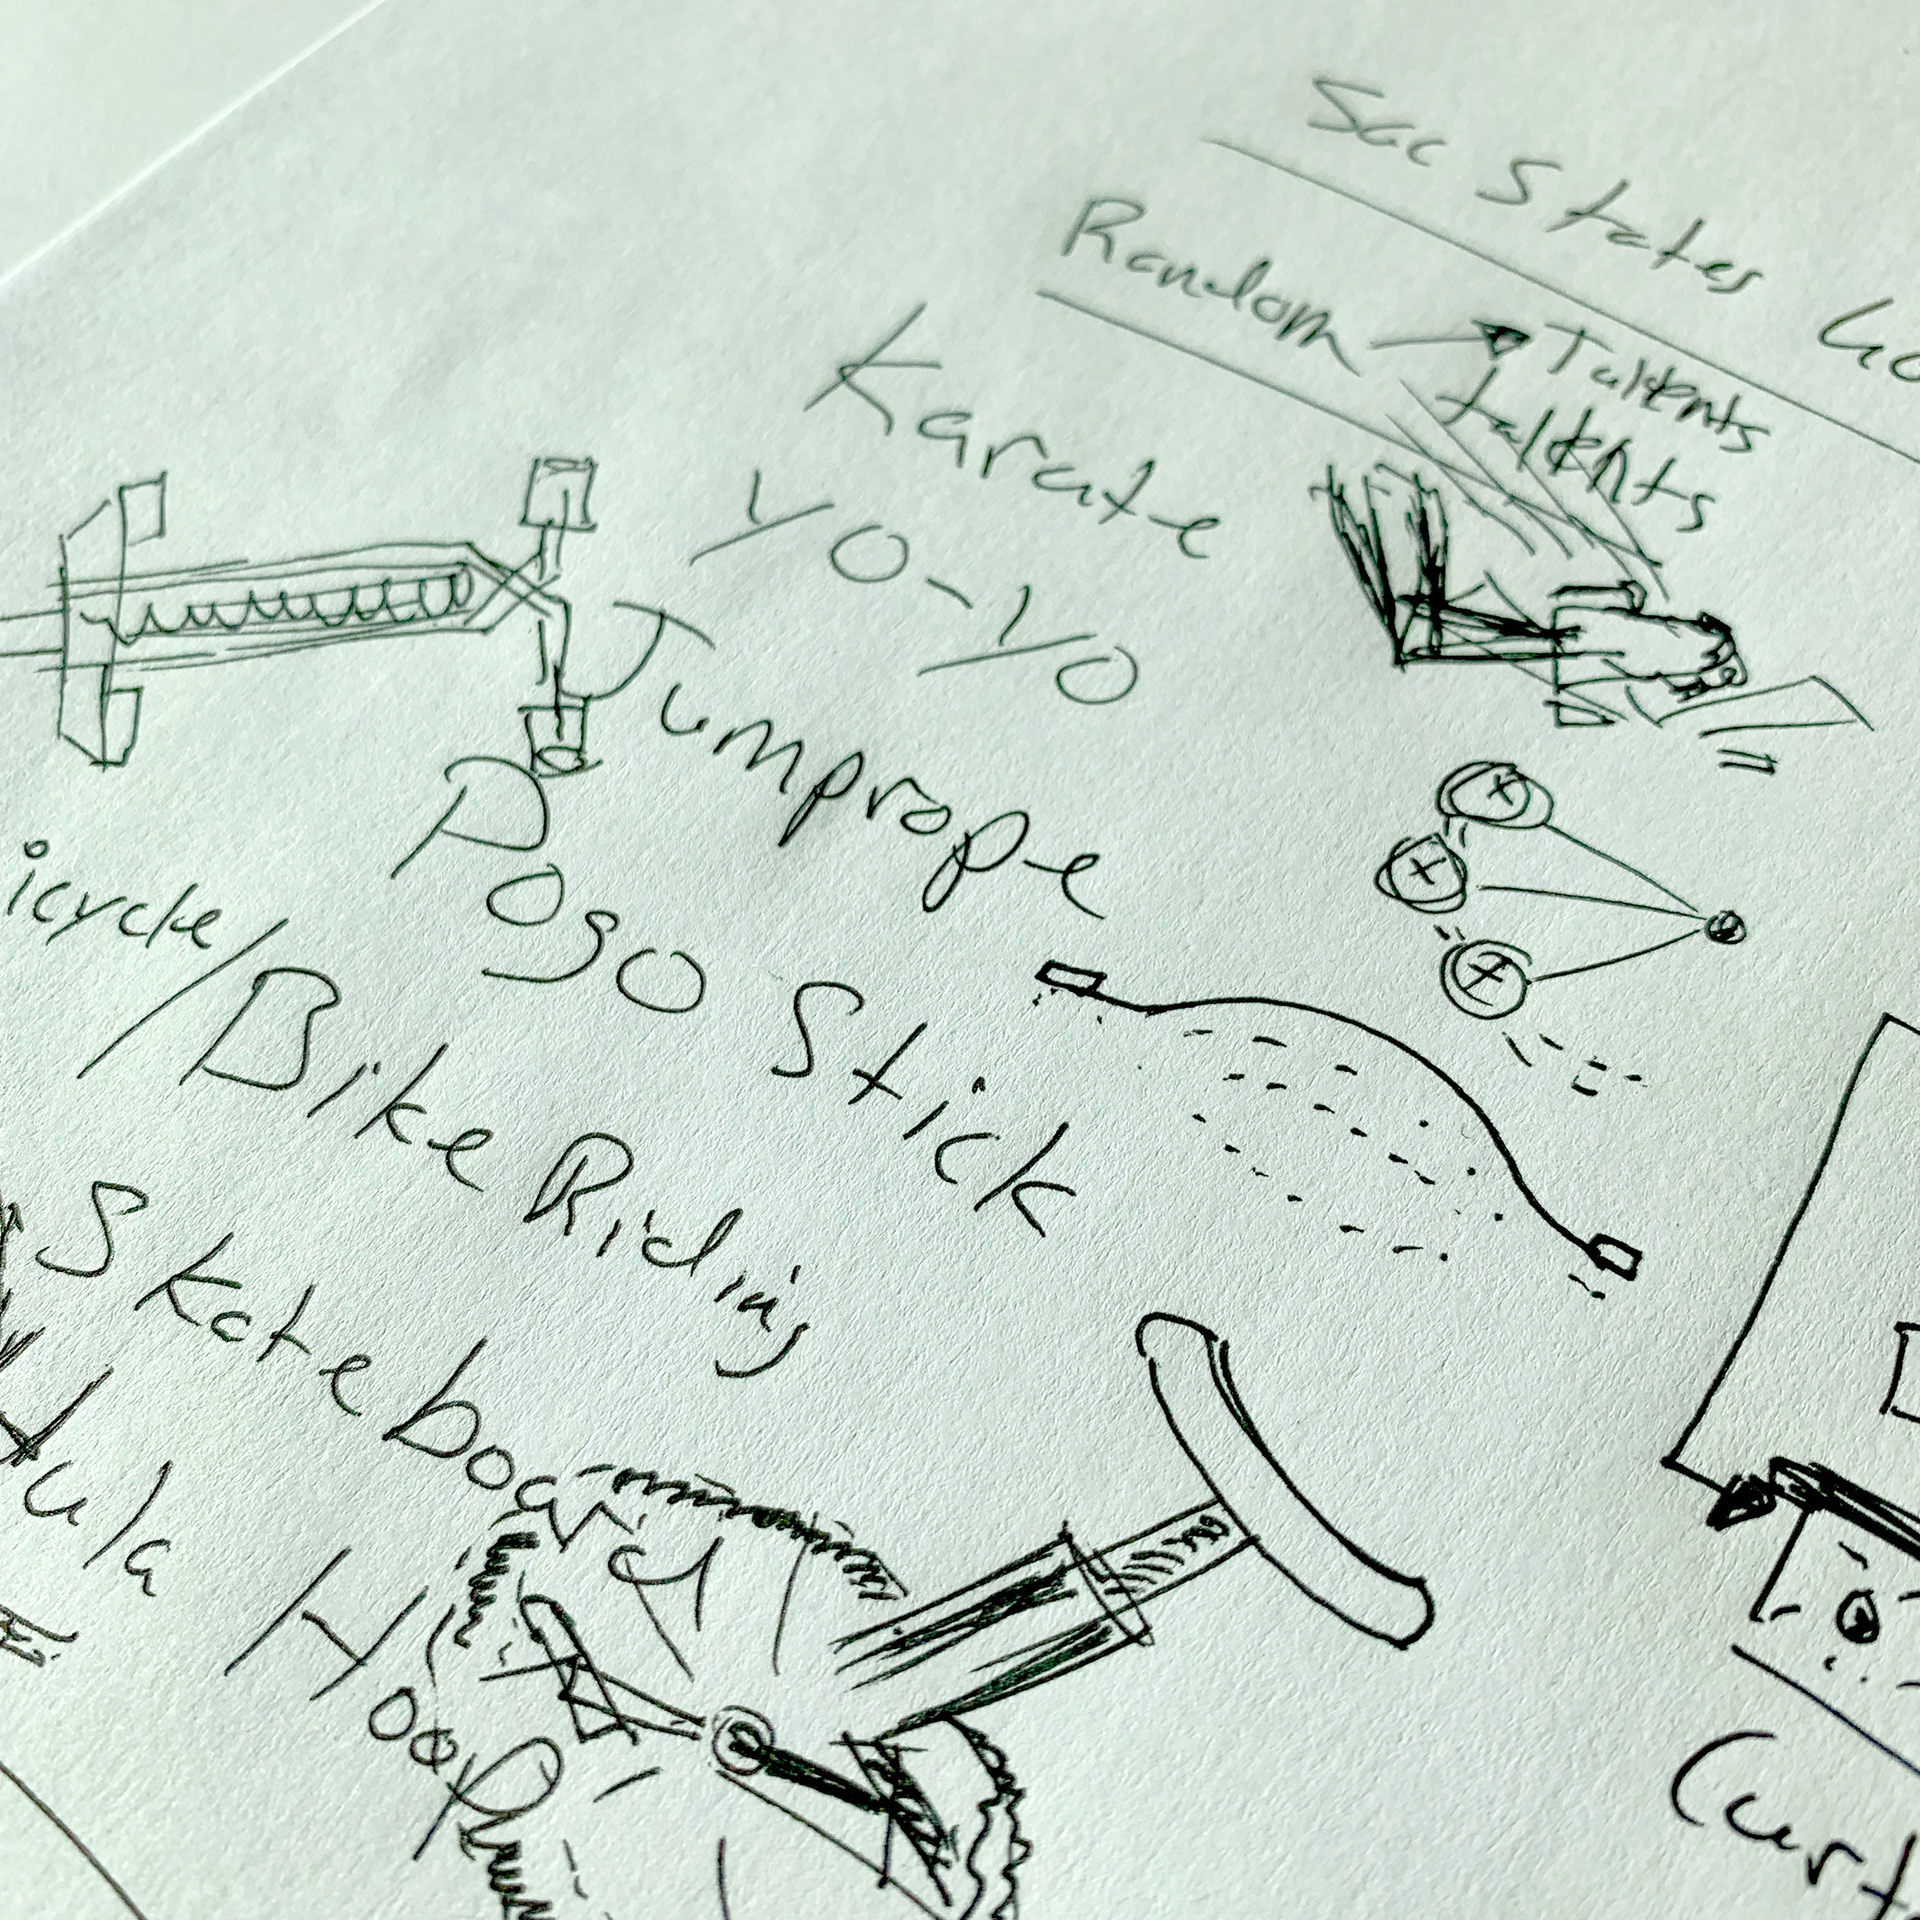 Sac States Go
Random Talents
talents
Karate
Yo-Yo
Jumprope
Pogo Stick
icycle/Bike Riding
Skateboard
Hula Hoop
Curt